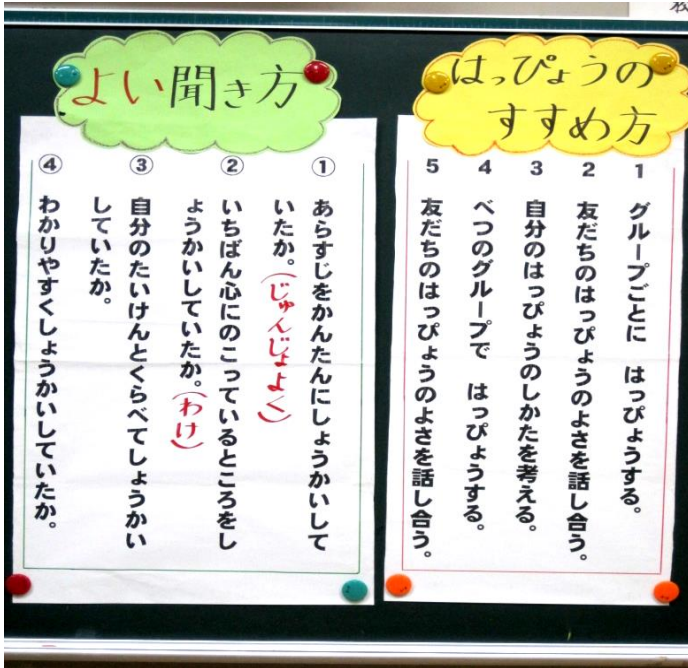 はっぴょうの
すすめ方
1 グループごとに　はっぴょうする。
2 友だちのはっぴょうのよさを話し合う。
3 自分のはっぴょうのしかたを考える。
4 べつのグループで　はっぴょうする。
5 友だちのはっぴょうのよさを話し合う。
よい聞き方
① あらすじをかんたんにしょうかいして
いたか。(じゅんじょよく)
② いちばん心にのこっているところをし
ょうかいしていたか。(わけ)
③ 自分のたいけんとくらべてしょうかい
していたか。
④ わかりやすくしょうかいしていたか。